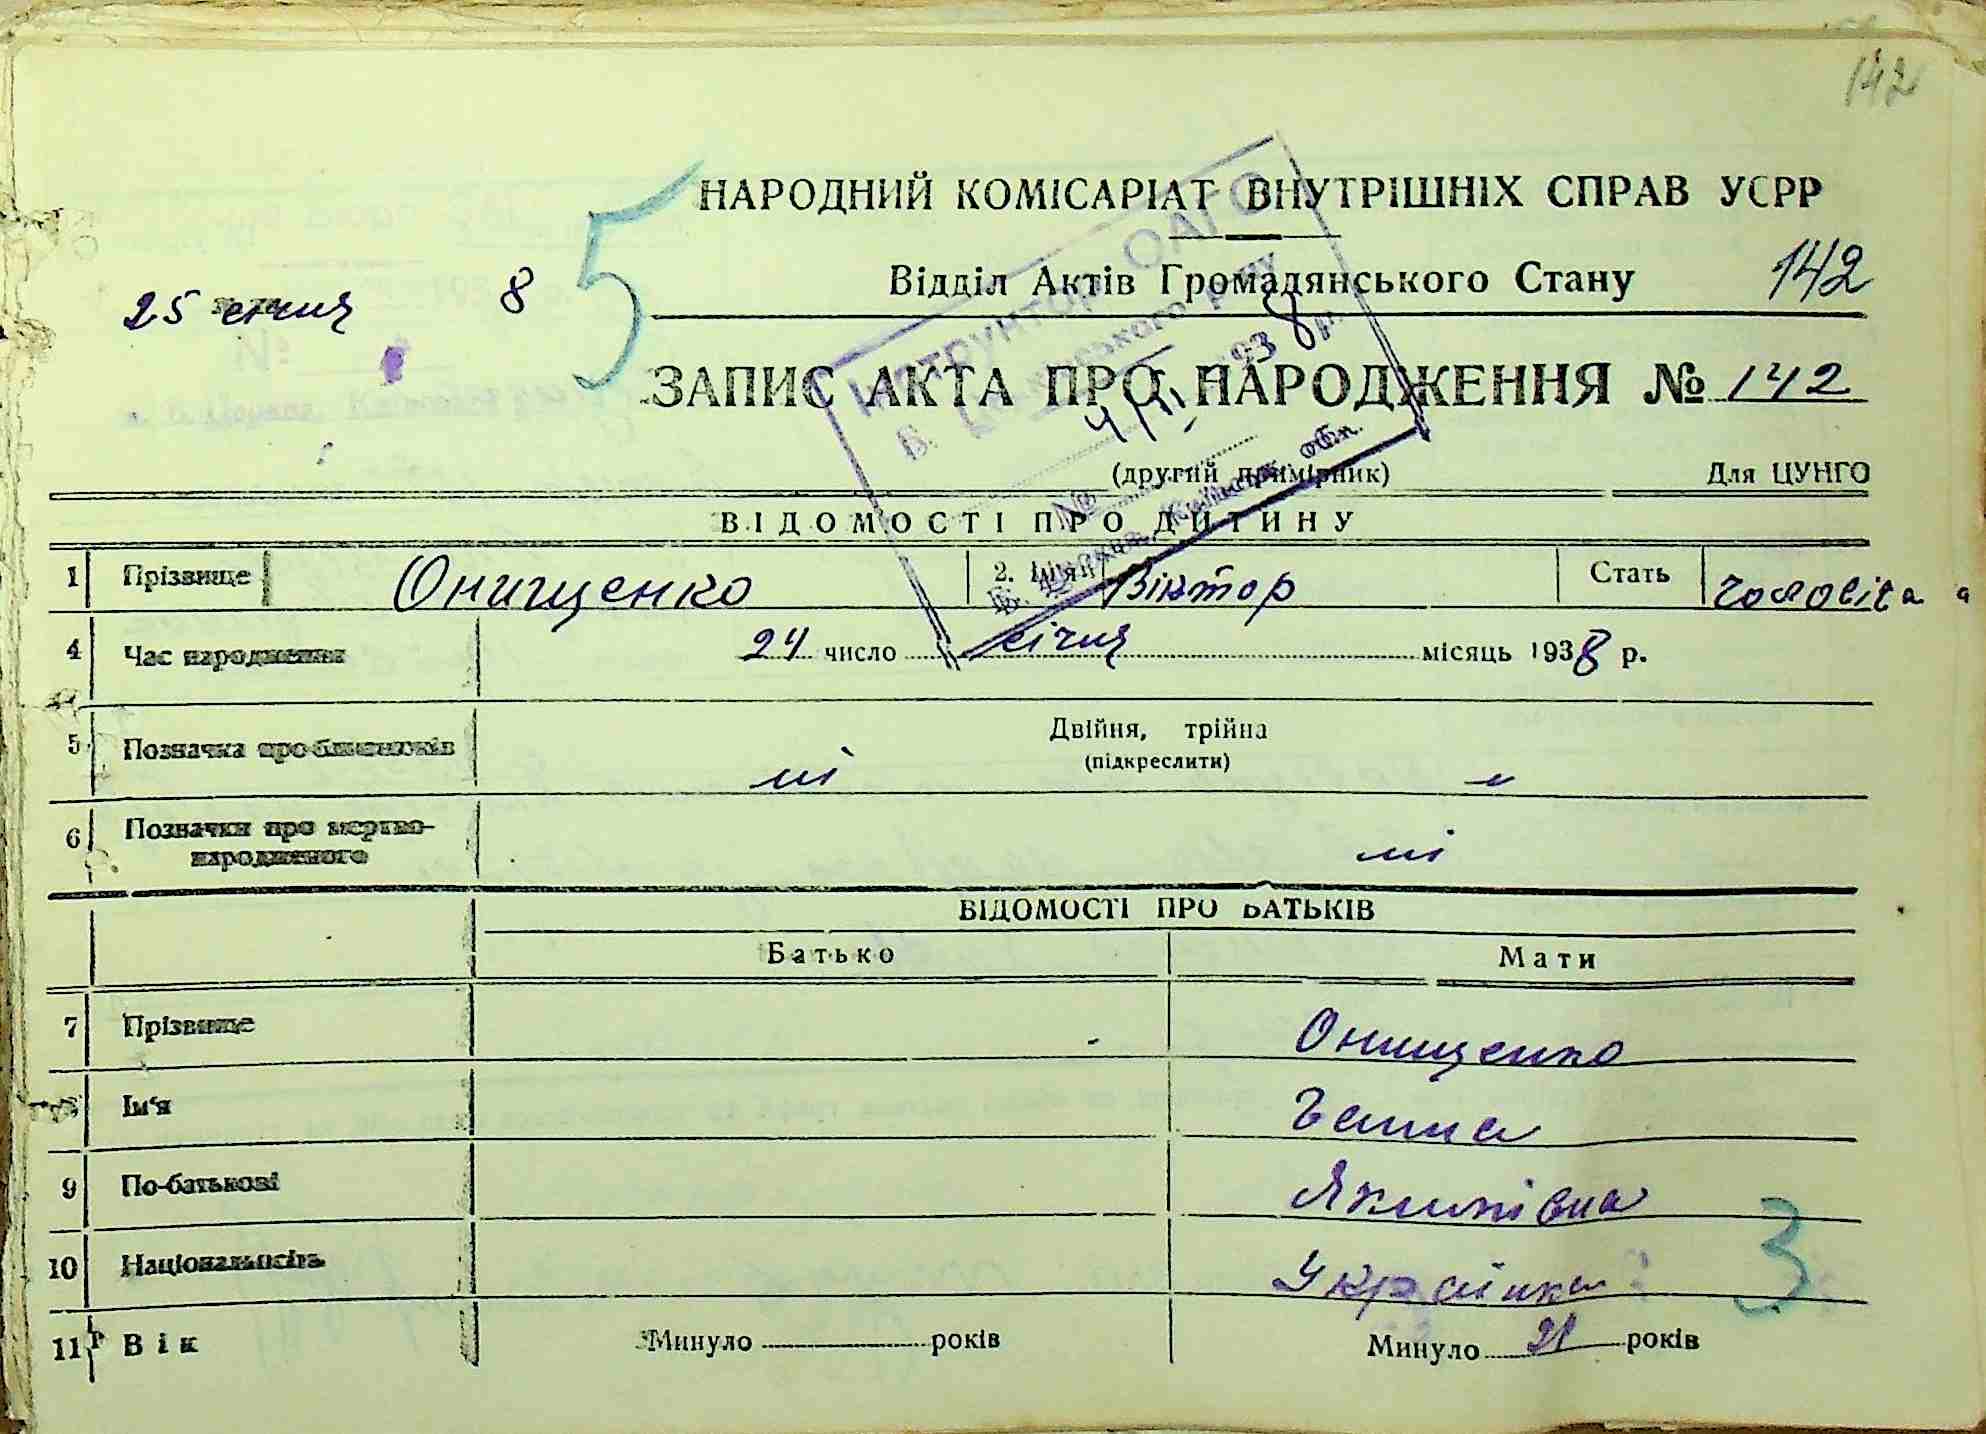 142
НАРОДНИЙ КОМІСАРІАТ ВНУТРІШНІХ СПРАВ УСРР
25 січня 8 5 Відділ Актів Громадянського Стану 142
ЗАПИС АКТА ПРО НАРОДЖЕННЯ № 142
(другий примірник) Для ЦУНГО
Інструктор ОАГС
193 8 р.
4/II
№
Київськ. обл.
ВІДОМОСТІ ПРО ДИТИНУ
1 Прізвище Онищенко 2. Ім'я Віктор Стать чоловіча
4 Час народження 24 число січня місяць 1938 р.
5 Позначка про близнюків Двійня, трійна
(підкреслити)
ні "
6 Позначки про мертво-
народженого ні
ВІДОМОСТІ ПРО БАТЬКІВ
Батько Мати
7 Прізвище Онищенко
8 Ім'я Ганна
9 По-батькові Якимівна
10 Національність Українка 3
11 Вік Минуло років Минуло 21 років